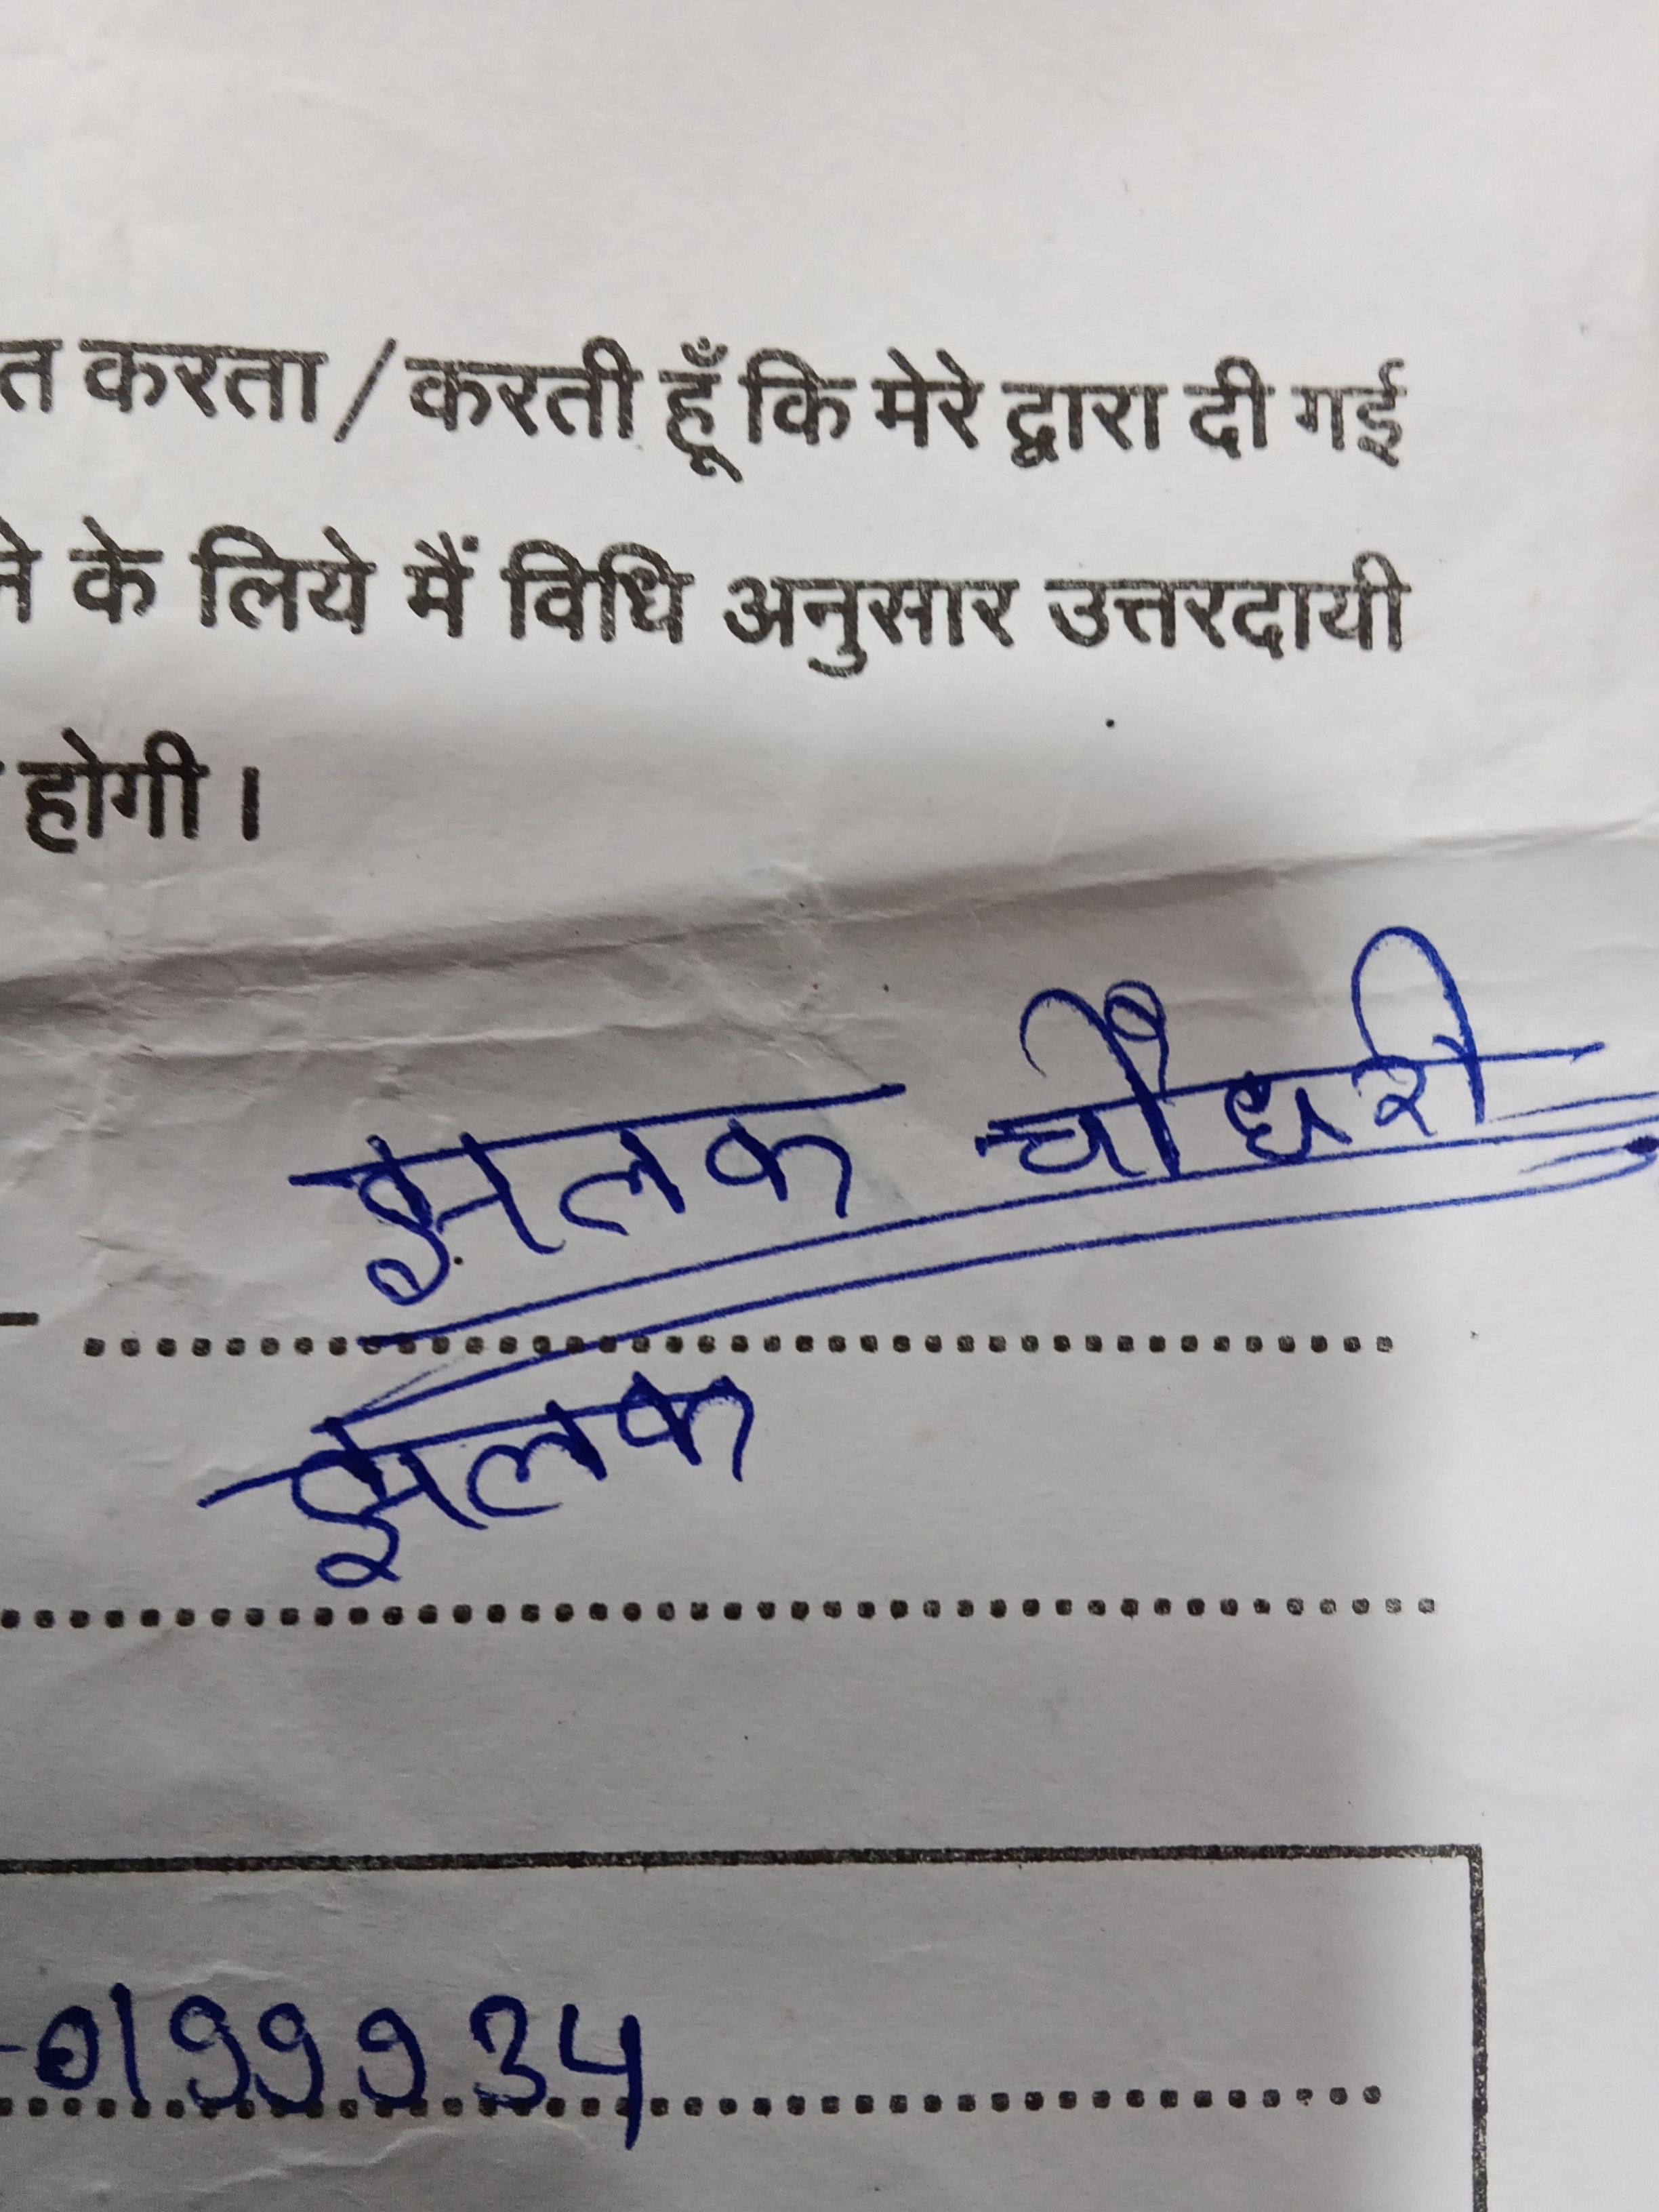 त करता/करती हूँ कि मेरे द्वारा दी गई
ने के लिये मैं विधि अनुसार उत्तरदायी
होगी।
झलक चौधरी
झलक
0199934